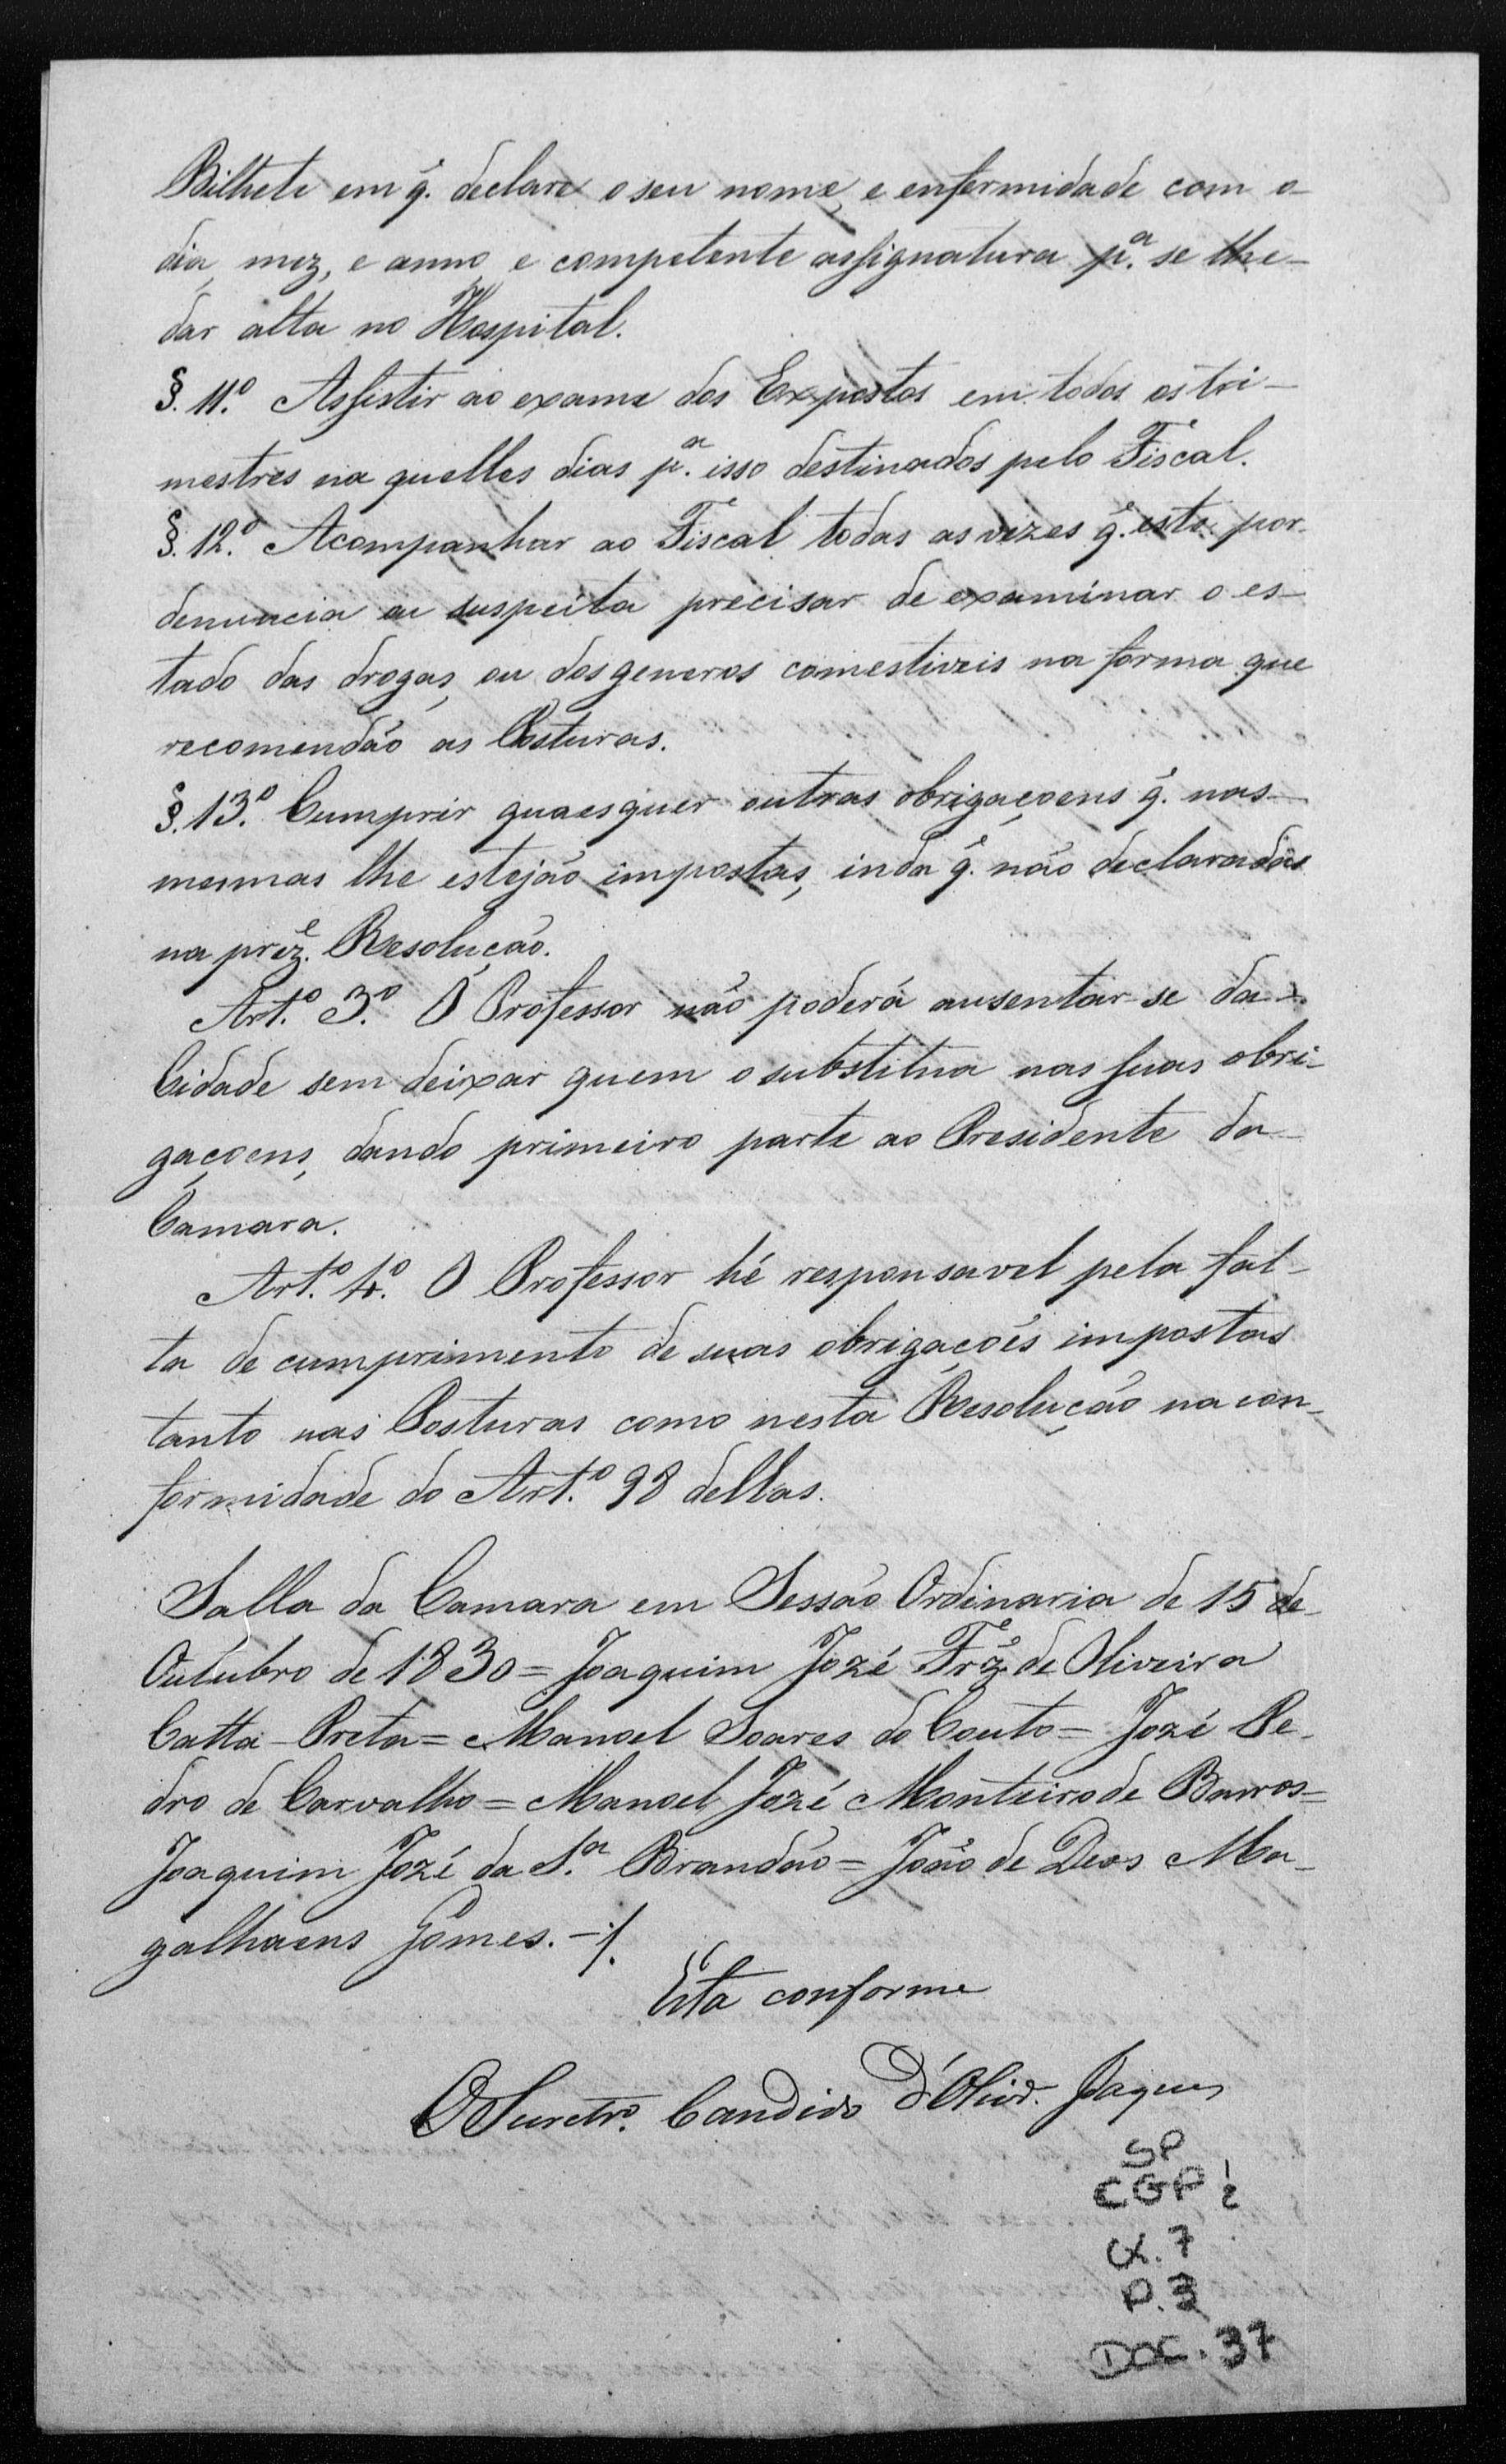 Bilhete em q̃. declare o seu nome, e enfermidade com o
dia, mez, e anno, e competente assignatura p.ª se lhe
dar alta no Hospital.
§. 11.º Assistir ao exame dos Expostos em todos os tri-
mestres na quelles dias p.ª isso destinados pelo Fiscal.
§. 12.º Acompanhar ao Fiscal todas as vezes q̃. este por
denuncia ou suspeita precisar de examinar o es-
tado das drogas, ou dos generos comestiveis na forma que
recomendão as Posturas.
§. 13.º Cumprir quaesquer outras obrigaçoens q̃. nas
mesmas lhe estejão impostas, inda q̃. não declaradas
na prez.e Resolução.
Art.º 3.º O Professor não poderá ausentar-se da
Cidade sem deixar quem o substitua nas suas obri-
gaçoens, dando primeiro parte ao Presidente da
Camara.
Art.º 4.º O Professor hé responsavel pela fal-
ta de cumprimento de suas obrigações impostas
tanto nas Posturas como nesta Resolução na con-
formidade do Art.º 98 dellas.
Salla da Camara em Sessão Ordinaria de 15 de
Outubro de 1830 = Joaquim Jozé Frz̃ de Oliveira
Catta-Preta = Manoel Soares do Couto = Jozé Pe-
dro de Carvalho = Manoel Jozé Monteiro de Barros =
Joaquim Jozé da S.ª Brandão = João de Deos Ma-
galhaens Gomes. -/.
Está conforme
O Secretr.º Candido d'Olivr.ª Jaques
SP
CGP 1/2
CX. 7
P. 3
DOC. 37